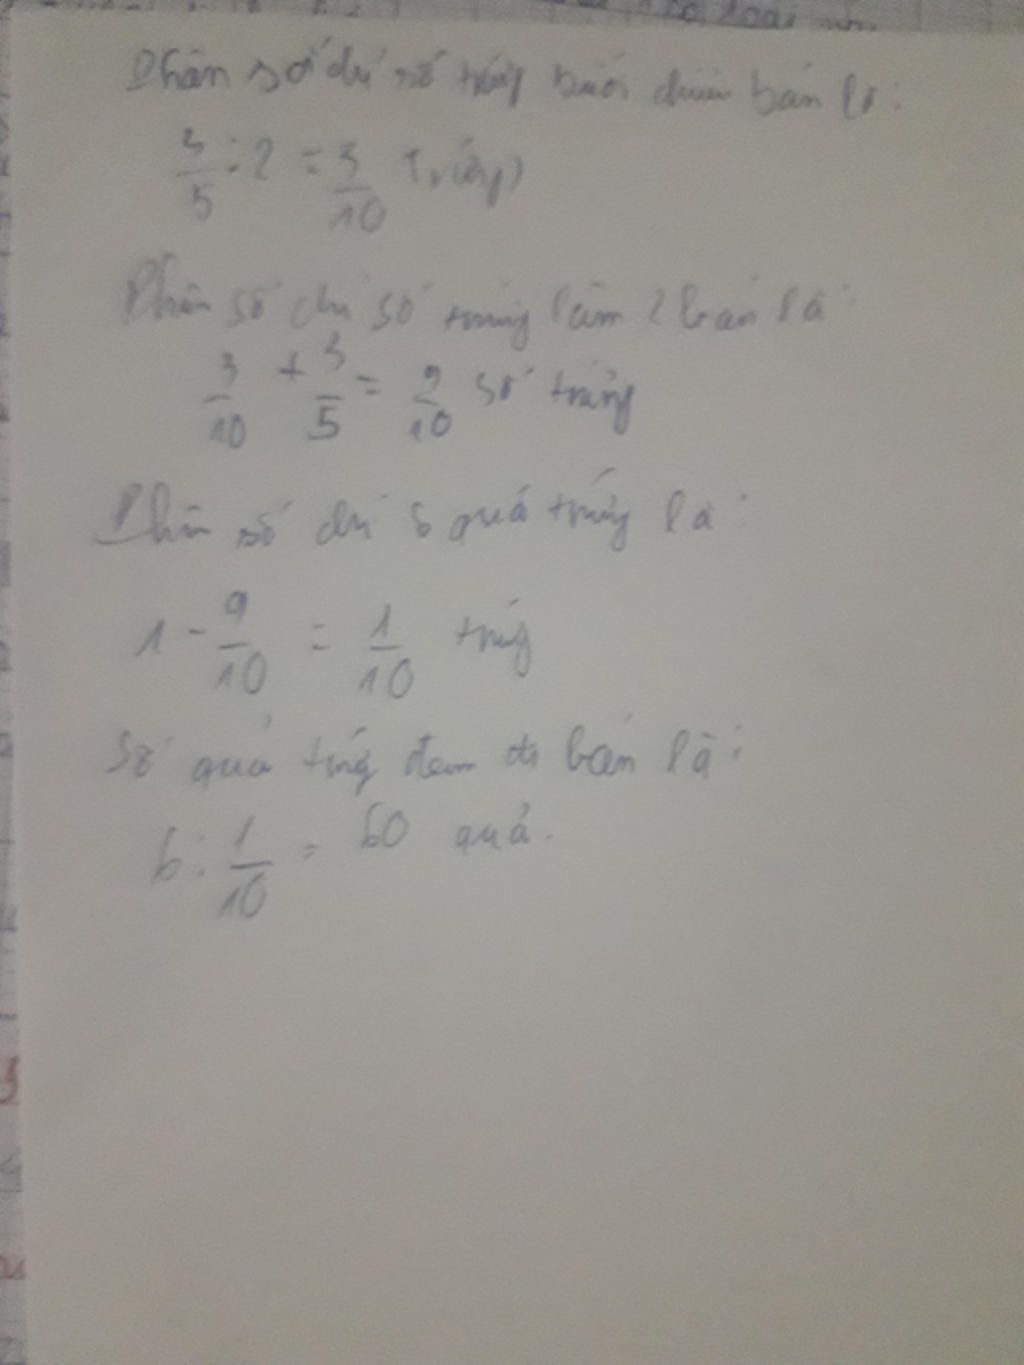 Phân số chỉ số trứng buổi chiều bán là:
3/5 : 2 = 3/10 (trứng)
Phân số chỉ số trứng lần 2 bán là:
3/10 + 3/5 = 9/10 số trứng
Phân số chỉ 6 quả trứng là:
1 - 9/10 = 1/10 trứng
Số quả trứng đem đi bán là:
6 : 1/10 = 60 quả.